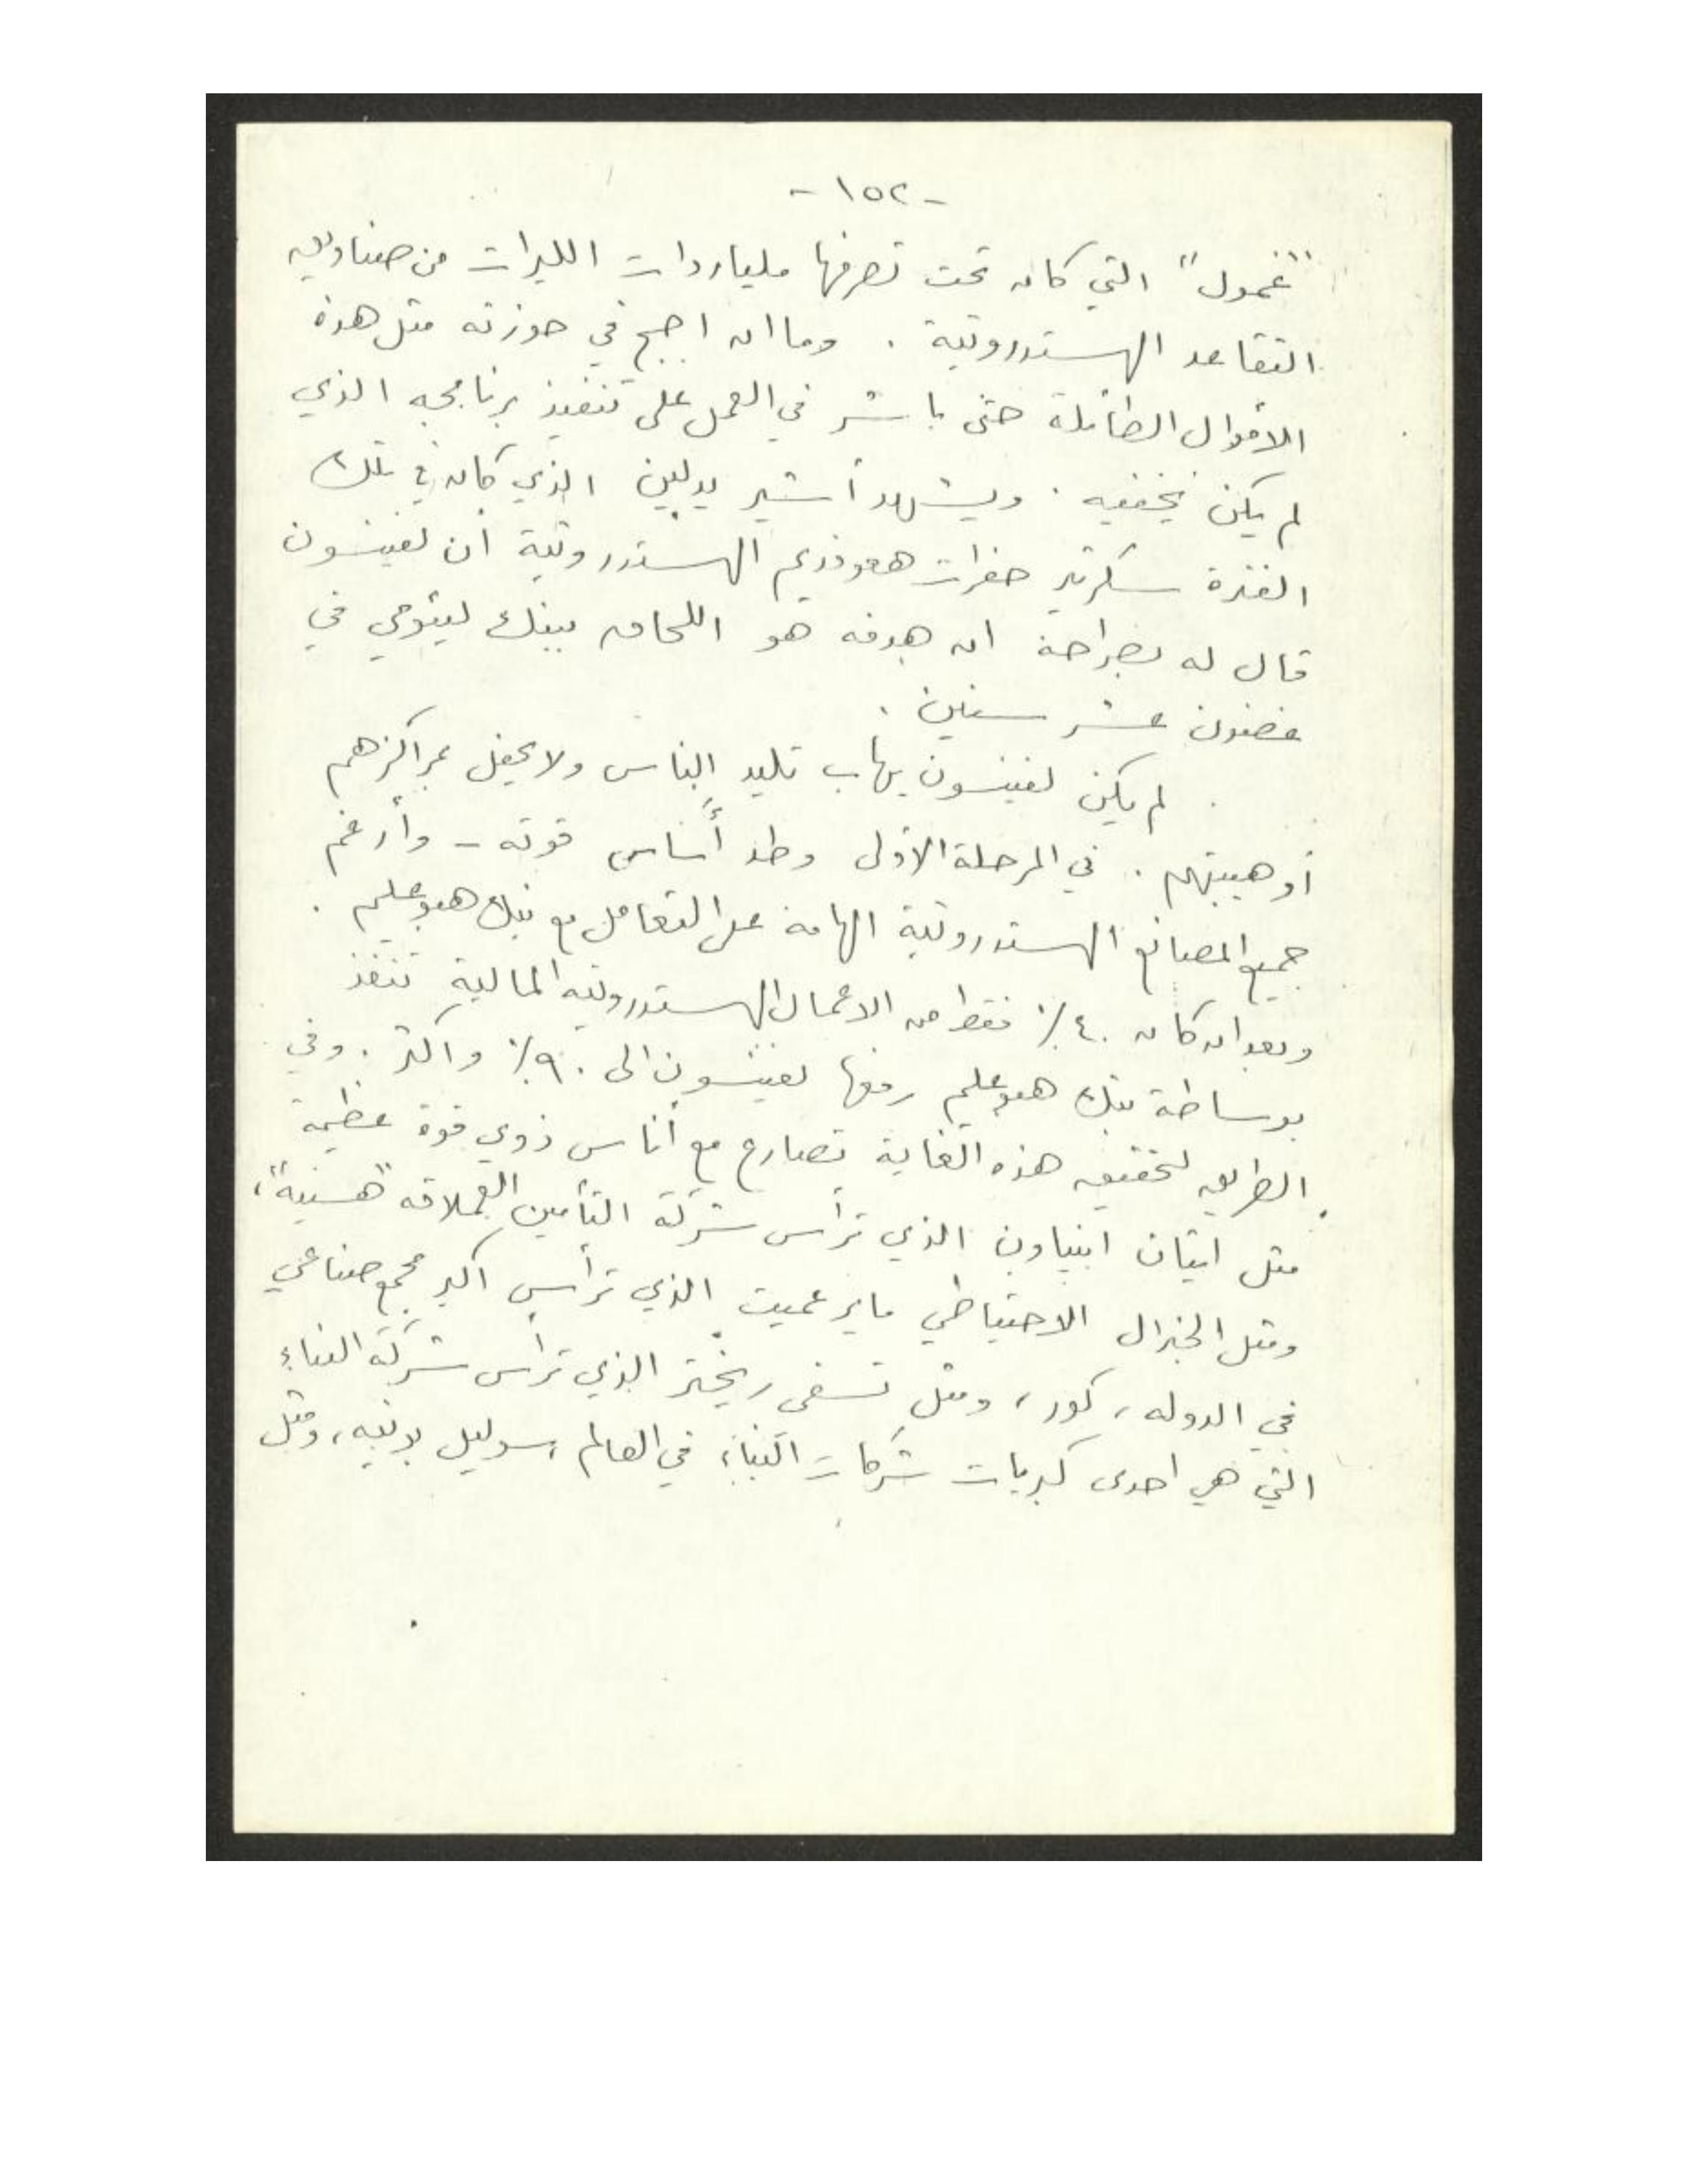 - ١٥٢ -
"غمول" التي كان تحت تصرفها مليارات الليرات من صناديق
التقاعد الهستدروتية . وما ان اصبح في حوزته مثل هذه
الأموال الطائلة حتى باشر في العمل على تنفيذ برنامجه الذي
لم يكن يخفيه . ويشهد أشير يدلين الذي كان في تلك
الفترة سكرتير حفرات هعوفديم الهستدروتية ان لفينسون
قال له بصراحة ان هدفه هو اللحاق ببنك ليئومي في
غضون عشر سنين .
لم يكن لفينسون يهاب تليد الناس ولا يحفل بمراكزهم
أو هيبتهم . في المرحلة الأولى وطد أساس قوته - وأرغم
جميع المصانع الهستدروتية الهامة على التعامل مع بنك هبوعليم .
وبعد ان كان ٤٠٪ فقط من الاعمال الهستدروتيه المالية تنفذ
بوساطة بنك هبوعليم رفعها لفينسون الى ٩٠٪ واكثر . وفي
الطريق لتحقيق هذه الغاية تصارع مع أناس ذوي قوة عظيمة
مثل ايتان ابنياون الذي ترأس شركة التأمين العملاقه "هسنيه"،
ومثل الجنرال الاحتياطي ماير عميت الذي ترأس اكبر مجمع صناعي
في الدوله ، كور ، ومثل تسفي ريختر الذي ترأس شركة البناء
التي هي احدى كبريات شركات البناء في العالم ، سوليل بونيه ، ومثل